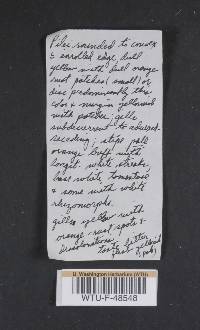 Pilei rounded to convex
& enrolled edge, dull
yellow with dull orange
rust patches (small) or
disc predominantly this
color & margin yellowed
with patches; gills
subdecurrent to adnexed-
seceding; stipe pale
orange buff with
longit. white streaks,
base white tomentose
& some with white
rhizomorphs.
gills yellow with
orange-rust spots &
discolorations.
taste bitter
U. Washington Herbarium (WTU)
WTU-F-48548